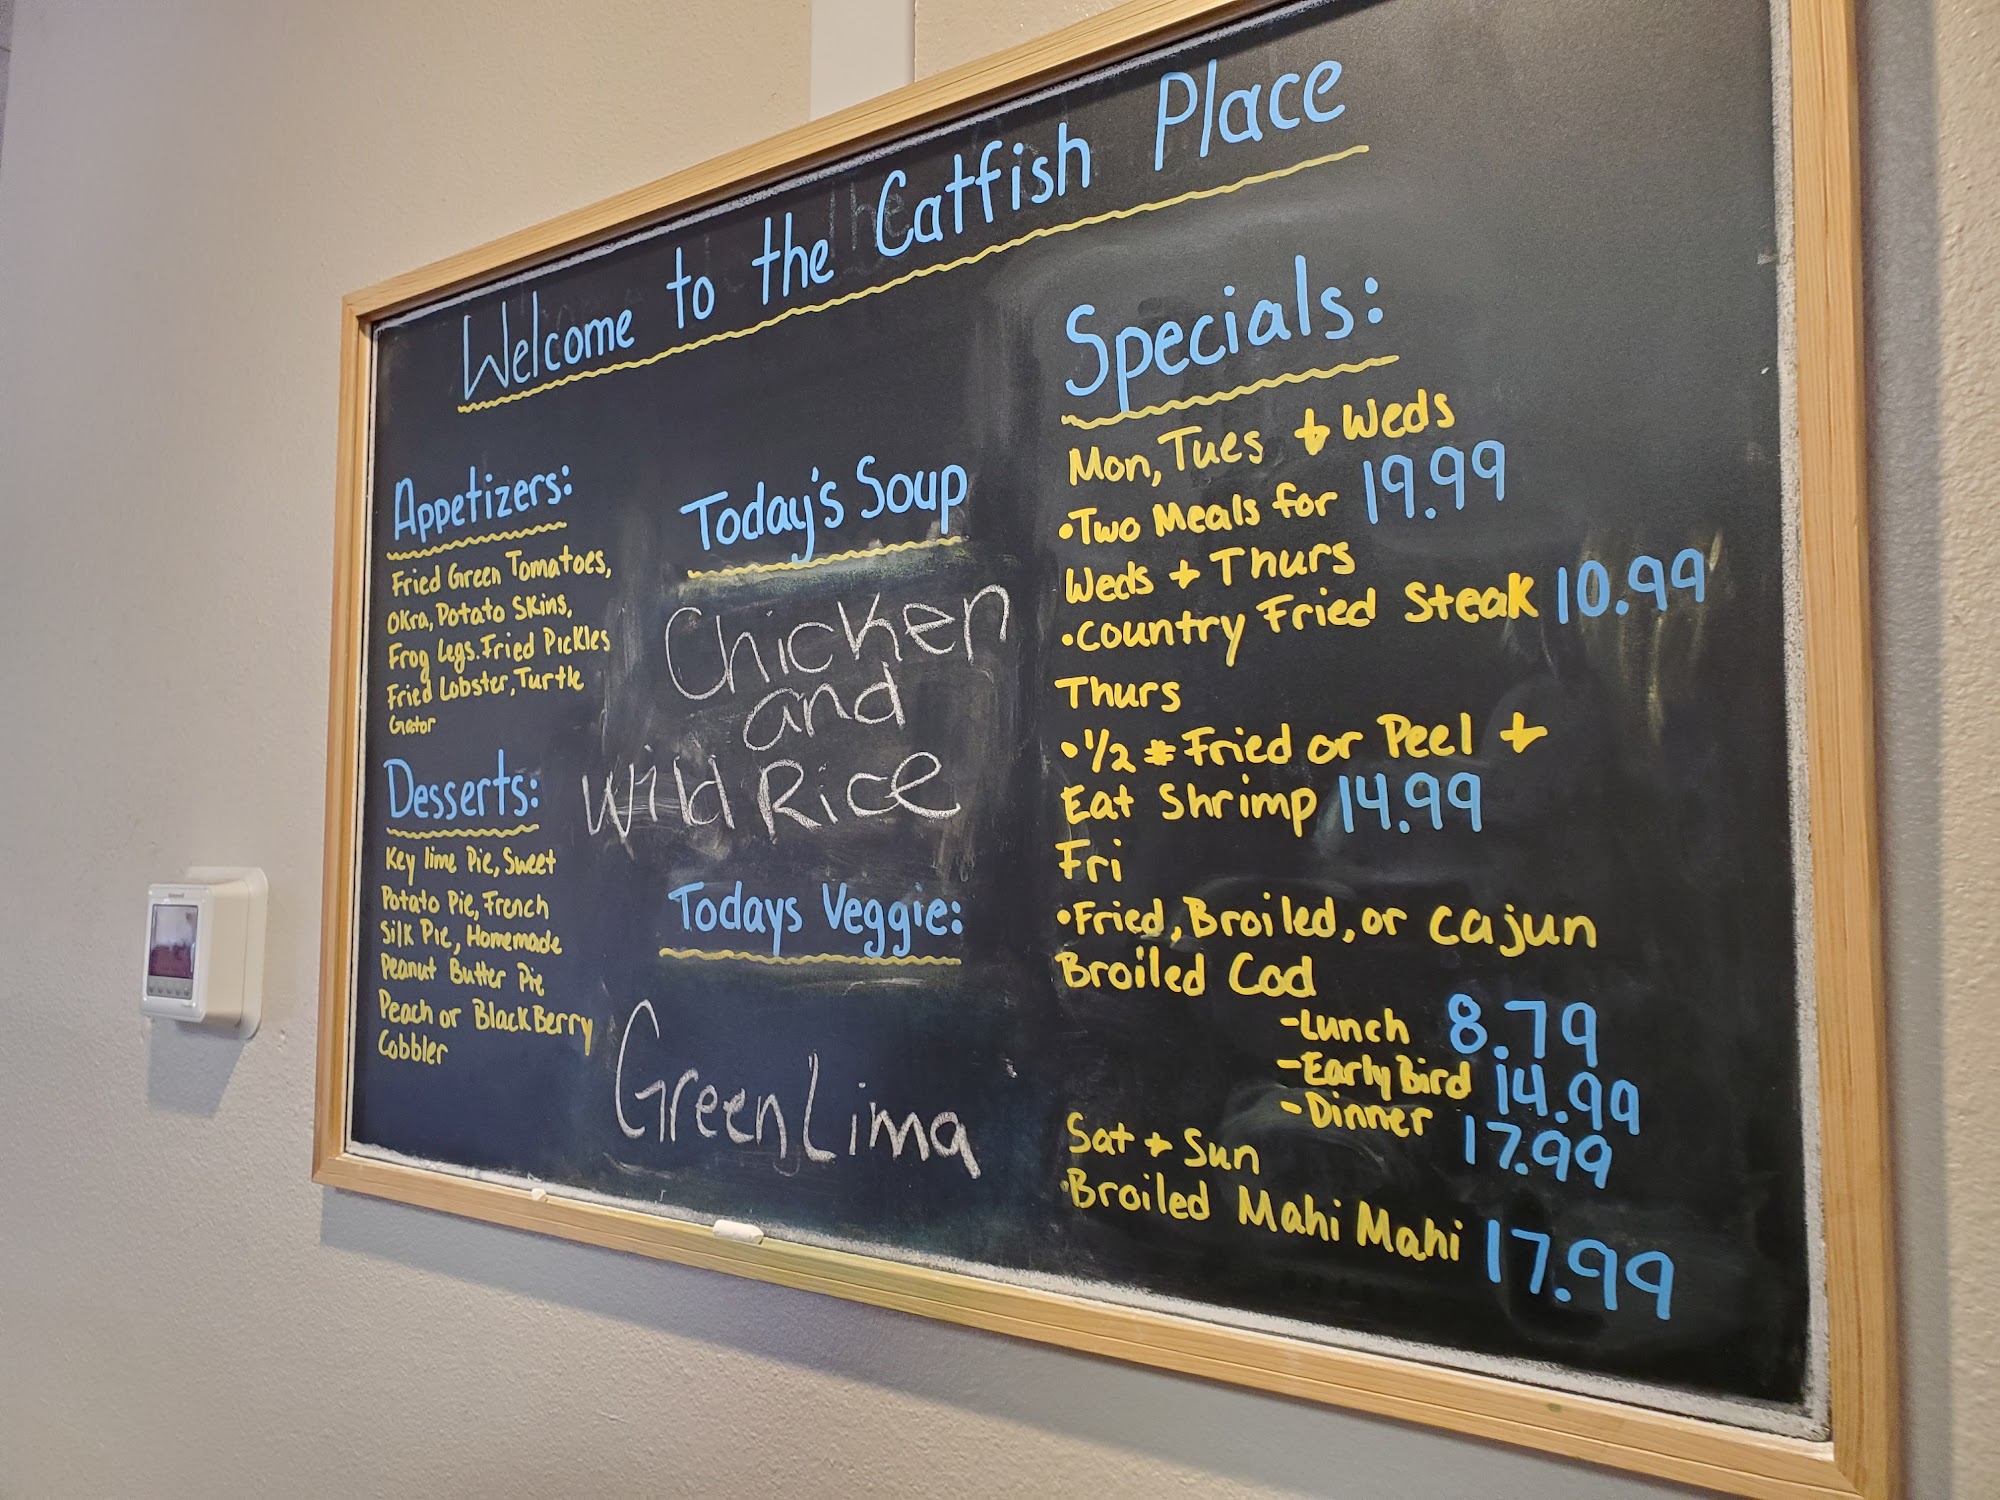 Welcome to the Catfish Place
Appetizers:
Fried Green Tomatoes,
Okra, Potato Skins,
Frog Legs. Fried Pickles
Fried Lobster, Turtle
Gator
Desserts:
Key lime Pie, Sweet
Potato Pie, French
Silk Pie, Homemade
Peanut Butter Pie
Peach or BlackBerry
Cobbler
Today's Soup
Chicken
and
Wild Rice
Todays Veggie:
Green Lima
Specials:
Mon, Tues + Weds
•Two Meals for 19.99
Weds + Thurs
•Country Fried Steak 10.99
Thurs
•1/2 # Fried or Peel +
Eat Shrimp 14.99
Fri
•Fried, Broiled, or Cajun
Broiled Cod
-Lunch 8.79
-Early Bird 14.99
-Dinner 17.99
Sat + Sun
•Broiled Mahi Mahi 17.99